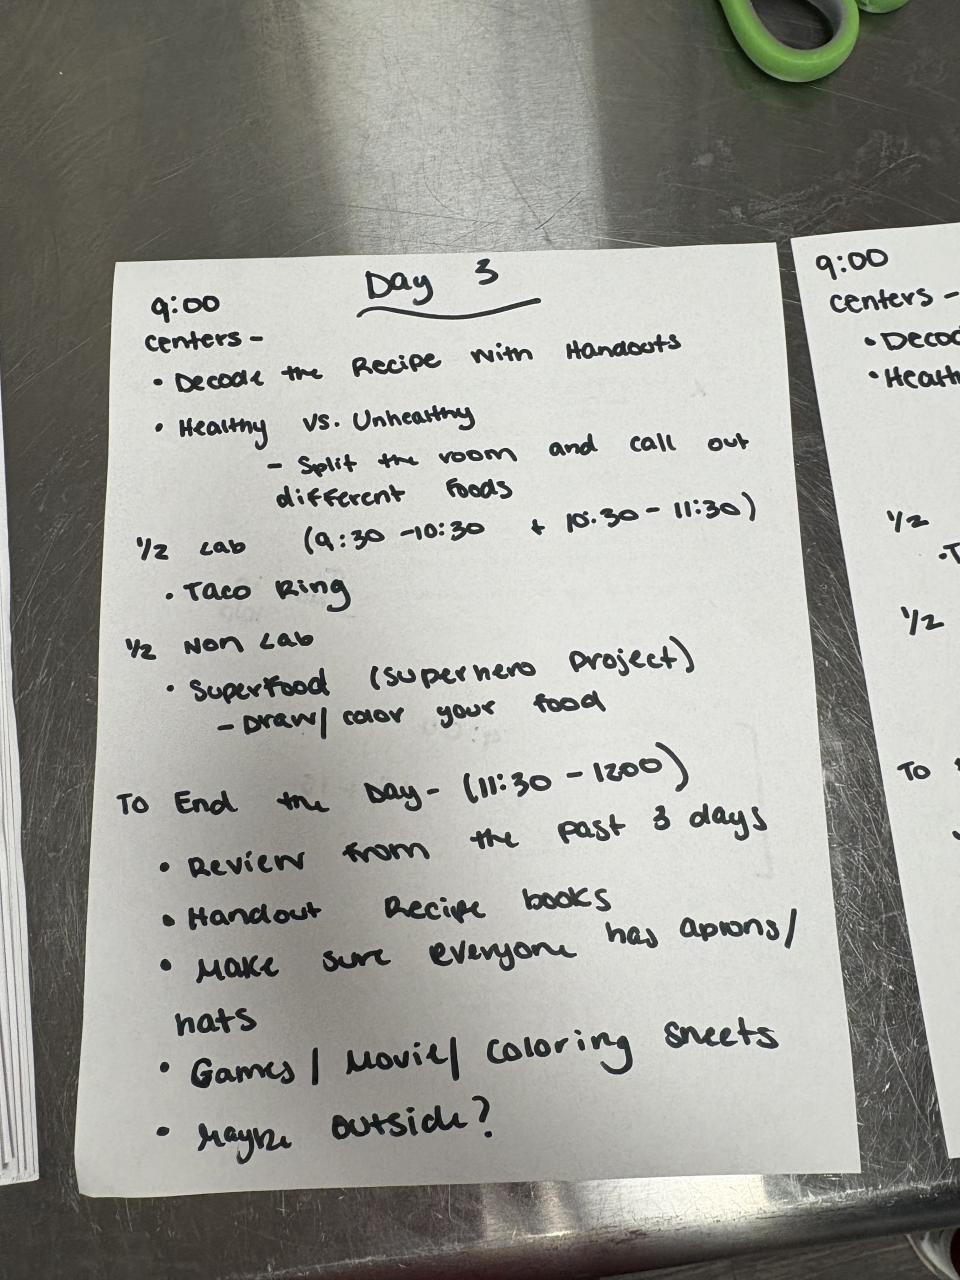 Day 3
9:00
Centers -
• Decode the Recipe with Handouts
• Healthy vs. Unhealthy
- Split the room and call out
different foods
1/2 Lab (9:30 -10:30 + 10:30 - 11:30)
• Taco Ring
1/2 Non Lab
• Superfood (superhero project)
- Draw/ color your food
To End the Day - (11:30 - 1200)
• Review from the past 3 days
• Handout Recipe books
• Make sure everyone has aprons/
hats
• Games / Movie/ coloring sheets
• Maybe outside?
9:00
Centers -
• Decod
• Health
1/2
• T
1/2
To